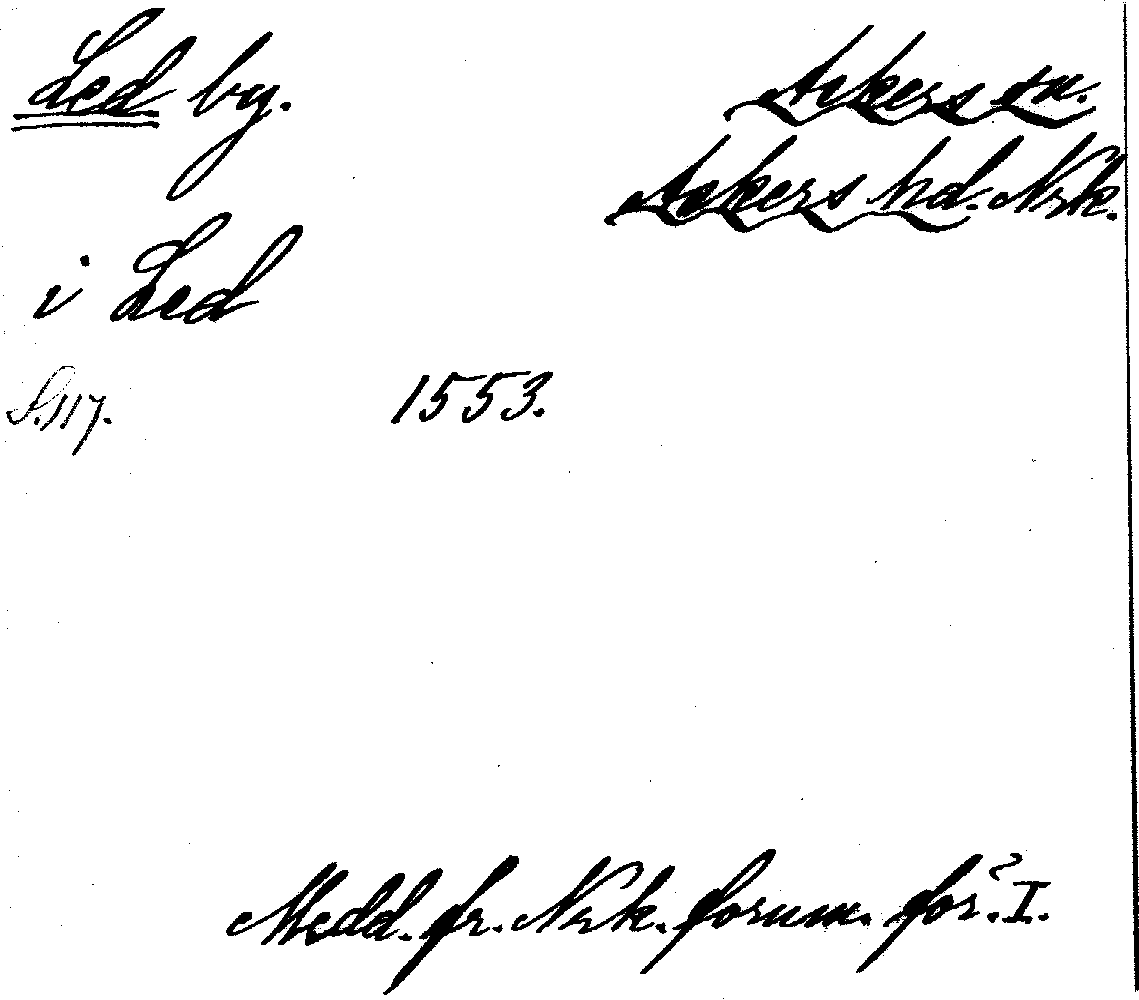 Led by.
Askers sn.
Askers hd. Nrk.
i Led
S. 117. 1553.
Medd. fr. Nrk. fornm. för. I.